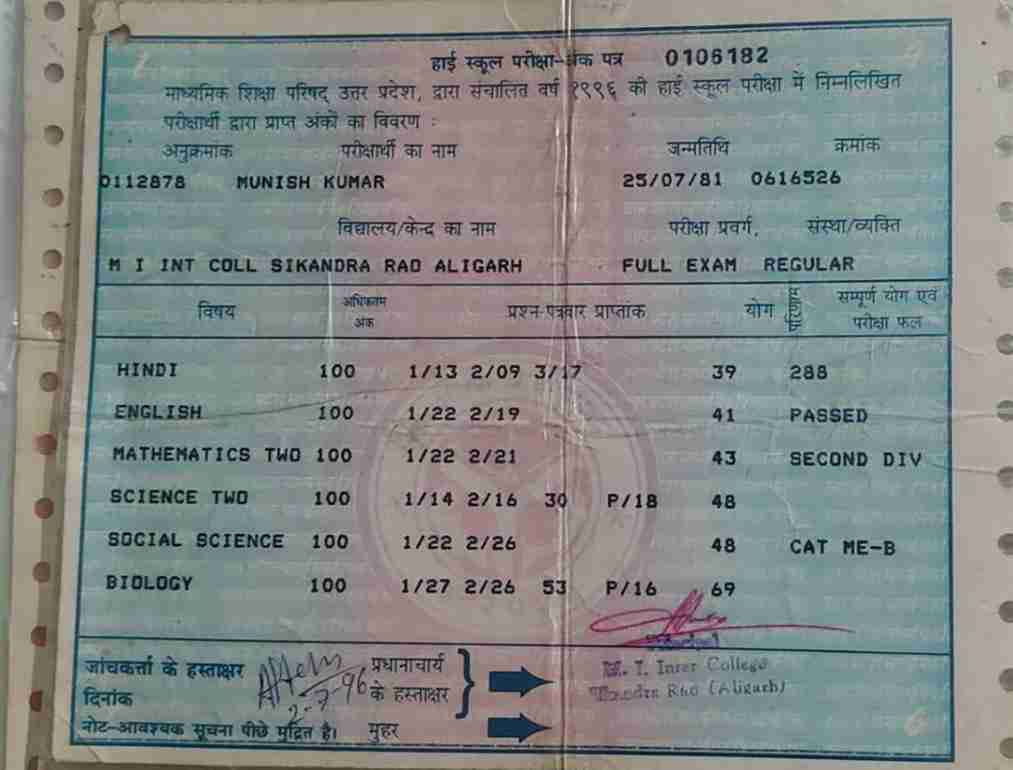 हाई स्कूल परीक्षा-अंक पत्र 0106182
माध्यमिक शिक्षा परिषद् उत्तर प्रदेश, द्वारा संचालित वर्ष १९९६ की हाई स्कूल परीक्षा में निम्नलिखित
परीक्षार्थी द्वारा प्राप्त अंकों का विवरण :
अनुक्रमांक परीक्षार्थी का नाम जन्मतिथि क्रमांक
0112878 MUNISH KUMAR 25/07/81 0616526
विद्यालय/केन्द का नाम परीक्षा प्रवर्ग, संस्था/व्यक्ति
M I INT COLL SIKANDRA RAO ALIGARH FULL EXAM REGULAR
विषय अधिकतम अंक प्रश्न-पत्रवार प्राप्तांक योग सम्पूर्ण योग एवं
परीक्षा फल
HINDI 100 1/13 2/09 3/17 39 288
ENGLISH 100 1/22 2/19 41 PASSED
MATHEMATICS TWO 100 1/22 2/21 43 SECOND DIV
SCIENCE TWO 100 1/14 2/16 30 P/18 48
SOCIAL SCIENCE 100 1/22 2/26 48 CAT ME-B
BIOLOGY 100 1/27 2/26 53 P/16 69
जांचकर्त्ता के हस्ताक्षर प्रधानाचार्य M. I. Inter College
दिनांक 2-7-96 के हस्ताक्षर Rao (Aligarh)
नोट-आवश्यक सूचना पीछे मुद्रित है। मुहर